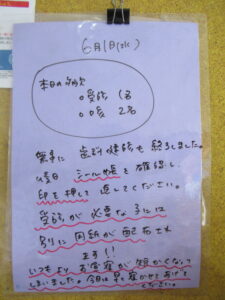 6月1日(水)
本日の欠席
○受診 1名
○〇〇 2名
無事に 歯科健診も 終りました。
後日 シール帳を確認し
印を押して 返してください。
受診が必要な子には
別に用紙が配布され
ます!!
いつもより お昼寝が短かくなって
しまいました。今日は早く寝かせてあげて
ください。